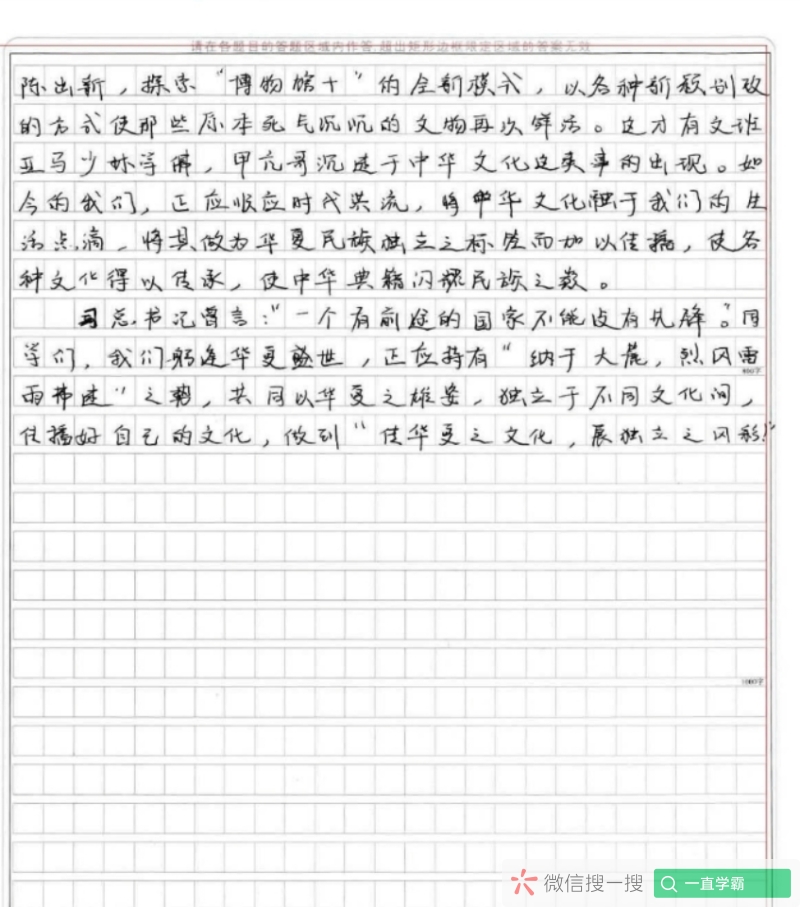 请在各题目的答题区域内作答,超出矩形边框限定区域的答案无效
陈出新，探索“博物馆十”的全新模式，以各种新颖
的方式使那些原本死气沉沉的文物再次鲜活。这才有文班
亚马少林寺，甲亢哥沉迷于中华文化这类事的出现。如
今的我们，正应顺应时代洪流，将中华文化融于我们的生
活点滴，将其做为华夏民族独立之标签而加以传播，使各
种文化得以传承，使中华典籍闪耀民族之
习总书记曾言：“一个有前途的国家不能没有先锋。”同
学们，我们躬逢华夏盛世，正应持有“纳于大麓，烈风雷
800字
雨弗迷”之势，共同以华夏之雄姿，独立于不同文化间，
传播好自己的文化，做到“传华夏之文化，展独立之风彩！”
1000字
微信搜一搜
一直学霸